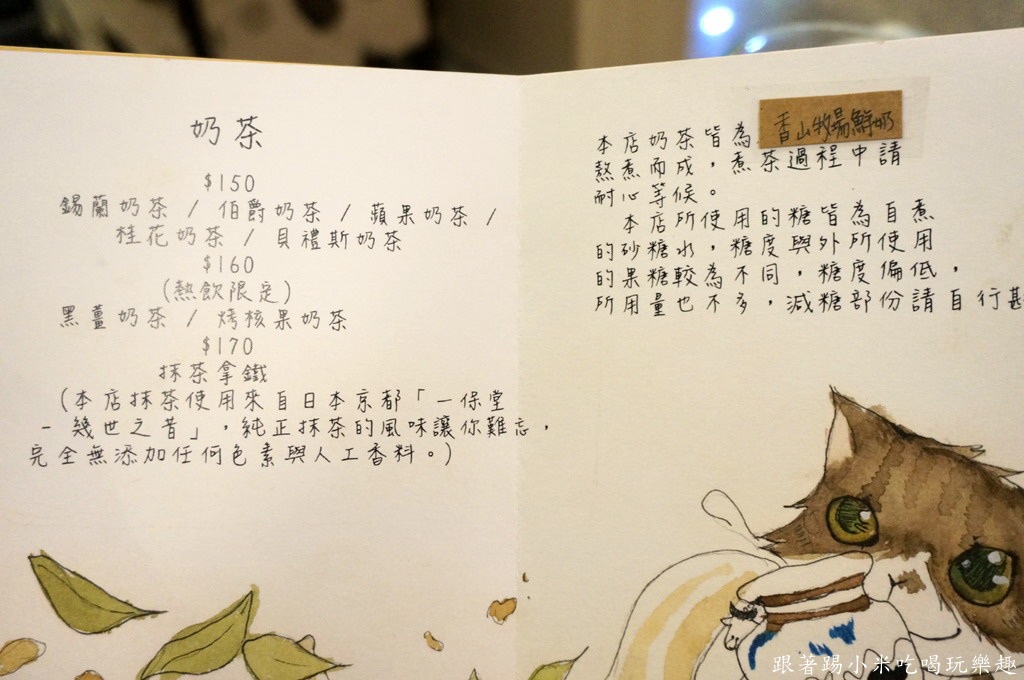 奶茶
$150
錫蘭奶茶 / 伯爵奶茶 / 蘋果奶茶 /
桂花奶茶 / 貝禮斯奶茶
$160
(熱飲限定)
黑薑奶茶 / 烤核果奶茶
$170
抹茶拿鐵
(本店抹茶使用來自日本京都「一保堂
- 幾世之昔」，純正抹茶的風味讓你難忘，
完全無添加任何色素與人工香料。)
本店奶茶皆為 香山牧場鮮奶
熬煮而成，煮茶過程中請
耐心等候。
本店所使用的糖皆為自煮
的砂糖水，糖度與外所使用
的果糖較為不同，糖度偏低，
所用量也不多，減糖部份請自行斟
跟著踢小米吃喝玩樂趣